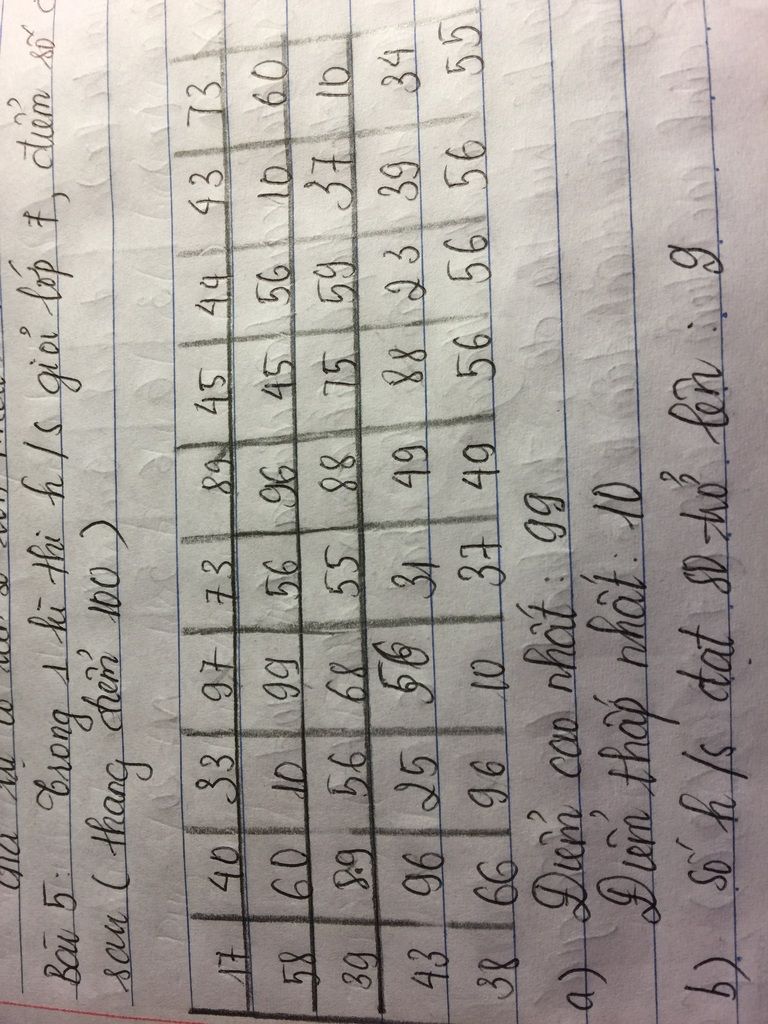 Bài 5: Trong 1 kì thi h/s giỏi lớp 7, điểm số
sau (thang điểm 100)
17 40 33 97 73 89 45 44 43 73
58 60 10 99 56 96 45 56 10 60
39 89 56 68 55 88 75 59 37 10
43 96 25 56 31 49 88 23 39 34
38 66 96 10 37 49 56 56 56 55
a) Điểm cao nhất: 99
Điểm thấp nhất: 10
b) Số h/s đạt 80 trở lên: 9